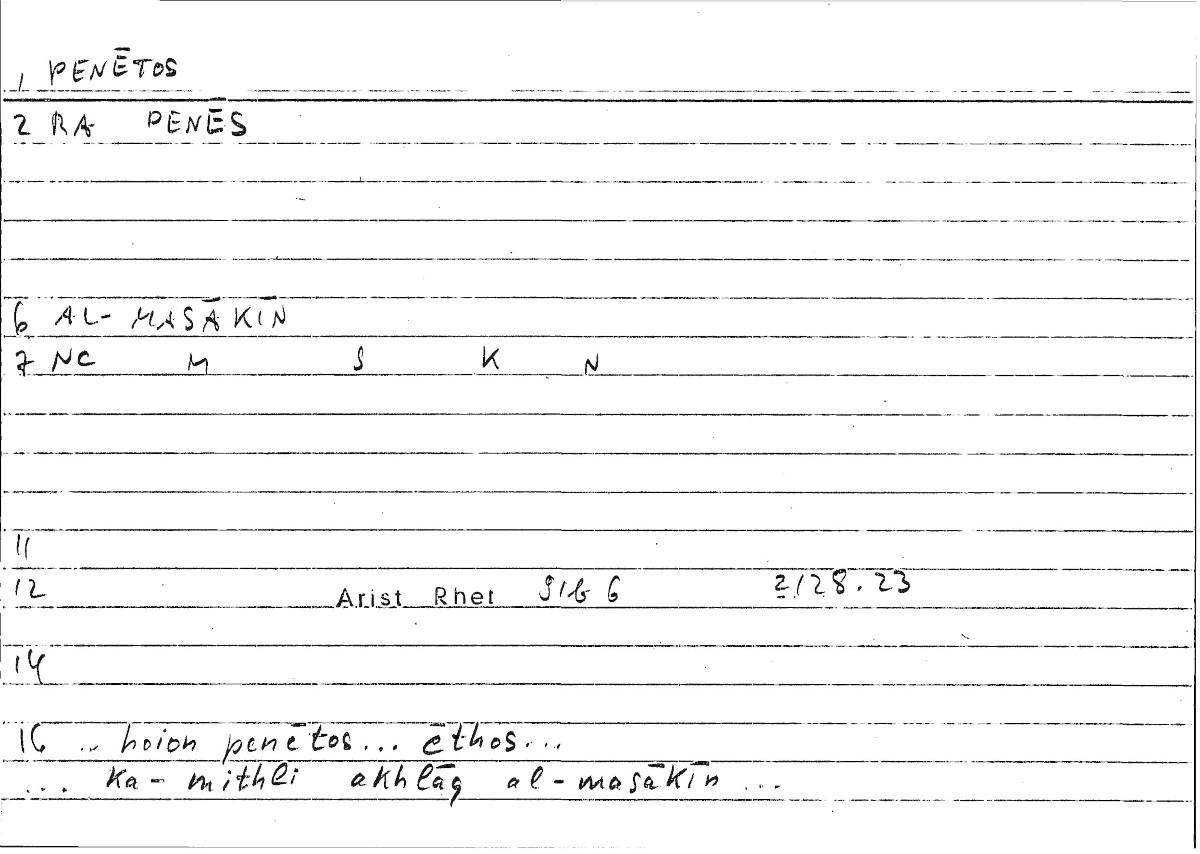 1 PENĒTOS
2 RA PENĒS
6 AL-MASĀKĪN
7 NC M S K N
11
12 Arist Rhet 91b6 2128.23
14
16 .. hoion penētos... ēthos...
... ka-mithli akhlāq al-masākīn ...